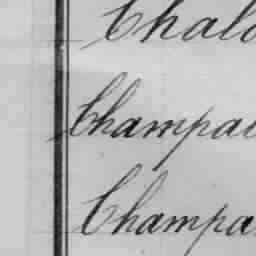 Chalo
Champai
Champa